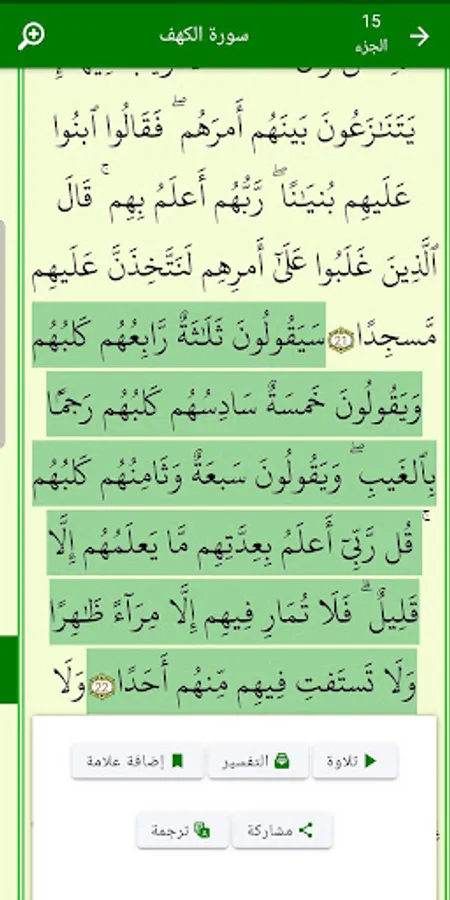 15
الجزء
سورة الكهف
يَتَنَـٰزَعُونَ بَينَهُم أَمرَهُم ۖ فَقَالُوا ٱبنُوا
عَلَيهِم بُنيَـٰنًا ۖ رَّبُّهُم أَعلَمُ بِهِم ۚ قَالَ
ٱلَّذِينَ غَلَبُوا عَلَىٰٓ أَمرِهِم لَنَتَّخِذَنَّ عَلَيهِم
مَّسجِدًا 21 سَيَقُولُونَ ثَلَـٰثَةٌ رَّابِعُهُم كَلبُهُم
وَيَقُولُونَ خَمسَةٌ سَادِسُهُم كَلبُهُم رَجمًا
بِٱلغَيبِ ۖ وَيَقُولُونَ سَبعَةٌ وَثَامِنُهُم كَلبُهُم
ۚ قُل رَّبِّىٓ أَعلَمُ بِعِدَّتِهِم مَّا يَعلَمُهُم إِلَّا
قَلِيلٌ ۗ فَلَا تُمَارِ فِيهِم إِلَّا مِرَآءً ظَـٰهِرًا
وَلَا تَستَفتِ فِيهِم مِّنهُم أَحَدًا 22 وَلَا
تلاوة
التفسير
إضافة علامة
مشاركة
ترجمة